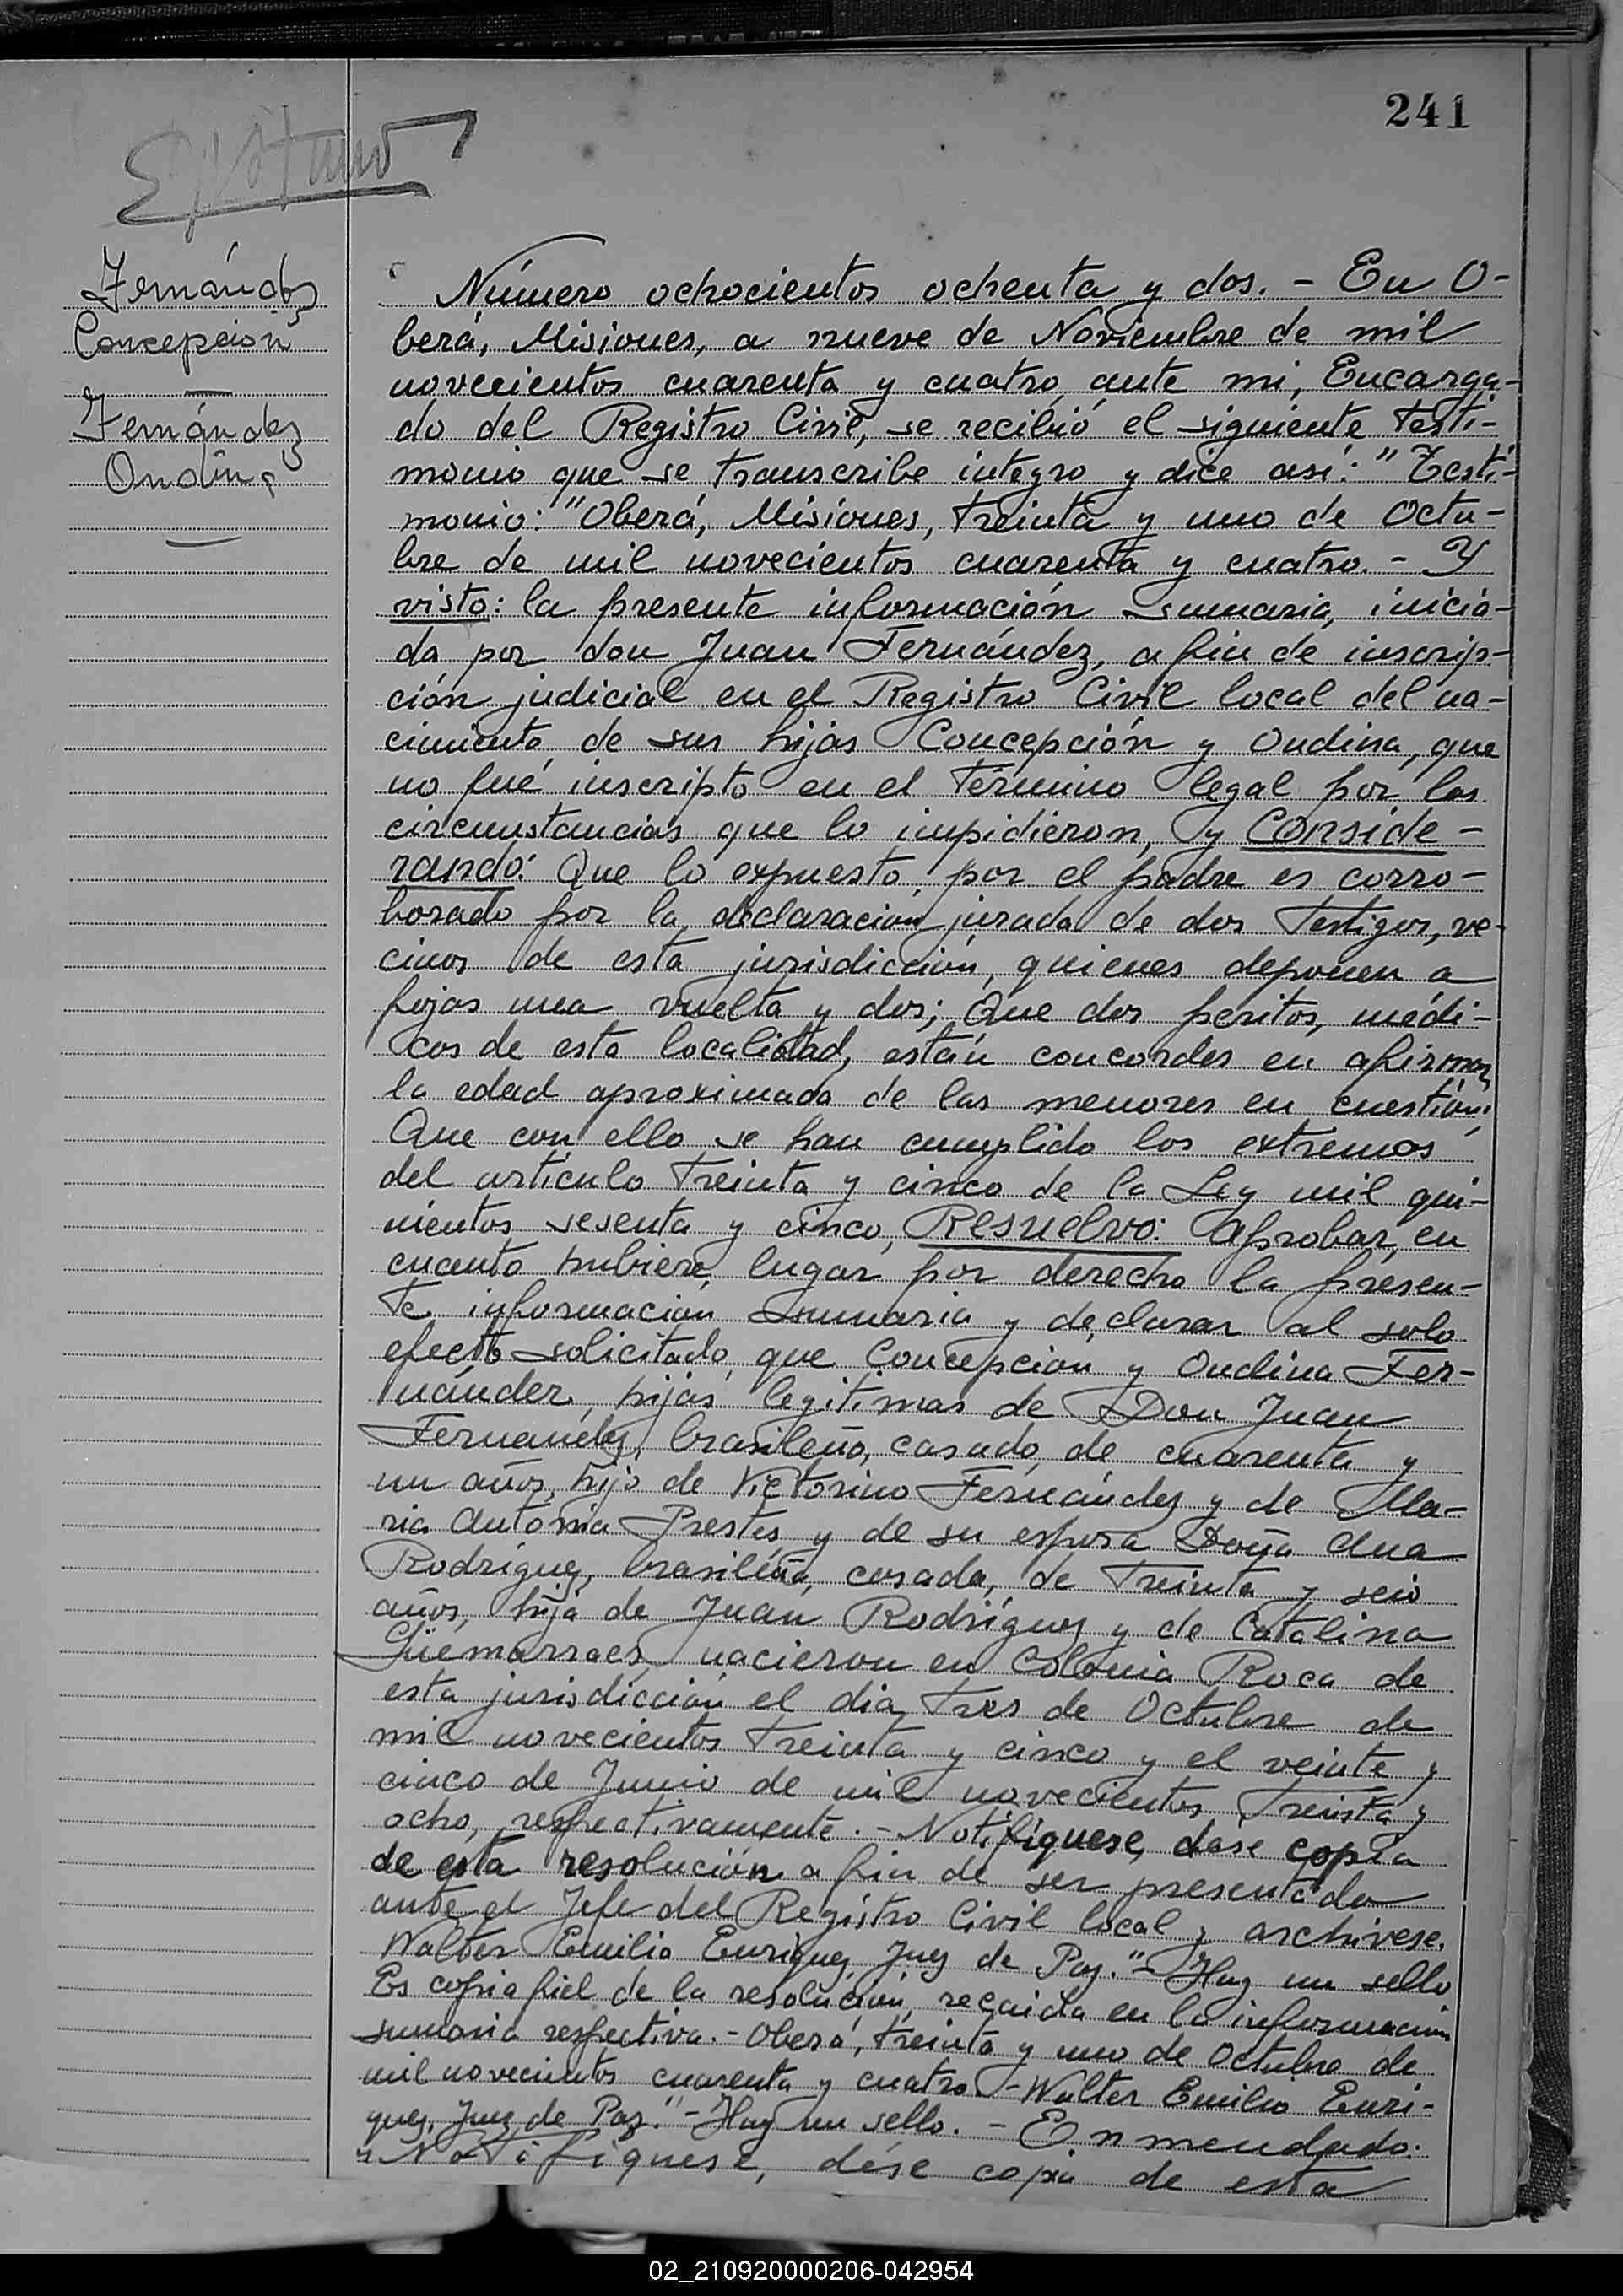 241
Fernández
Concepción
Fernández
Ondina
Número ochocientos ochenta y dos. - En O-
berá, Misiones, a nueve de Noviembre de mil
novecientos cuarenta y cuatro, ante mi, Encarga-
do del Registro Civil, se recibió el siguiente testi-
monio que se transcribe íntegro y dice así: "Testi-
monio: "Oberá, Misiones, treinta y uno de Octu-
bre de mil novecientos cuarenta y cuatro. - Y
visto: la presente información sumaria, inicia-
da por don Juan Fernández, a fin de inscrip-
ción judicial en el Registro Civil local del na-
cimiento de sus hijas Concepción y Ondina, que
no fué inscripto en el término legal por las
circunstancias que lo impidieron, y Conside-
rando: Que lo expuesto por el padre es corro-
borado por la declaración jurada de dos testigos, ve-
cinos de esta jurisdicción, quienes deponen a
fojas una vuelta y dos; Que dos peritos, médi-
cos de esta localidad, están concordes en afirmar
la edad aproximada de las menores en cuestión;
Que con ello se han cumplido los extremos
del artículo treinta y cinco de la Ley mil qui-
nientos sesenta y cinco, Resuelvo: aprobar, en
cuanto hubiere lugar por derecho la presen-
te información sumaria y declarar al solo
efecto solicitado, que Concepción y Ondina Fer-
nández, hijas legitimas de Don Juan
Fernandez, brasileño, casado, de cuarenta y
un años, hijo de Victorino Fernández y de Ma-
ria Antonia Prestes, y de su esposa Doña Ana
Rodríguez, brasileña, casada, de treinta y seis
años, hija de Juan Rodríguez y de Catalina
Güemarraes, nacieron en Colonia Roca de
esta jurisdicción el dia tres de Octubre de
mil novecientos treinta y cinco y el veinte y
cinco de Junio de mil novecientos treinta y
ocho, respectivamente. - Notifíquese, dése copia
de esta resolución a fin de ser presentada
ante el Jefe del Registro Civil local y archívese.
Walter Emilio Enriquez Juez de Paz." - Hay un sello
Es copia fiel de la resolución, recaida en la información
sumaria respectiva. - Oberá, treinta y uno de Octubre de
mil novecientos cuarenta y cuatro - Walter Emilio Enri-
quez, Juez de Paz." - Hay un sello. - Enmendado:
"Notifíquese, dése copia de esta
02_210920000206-042954